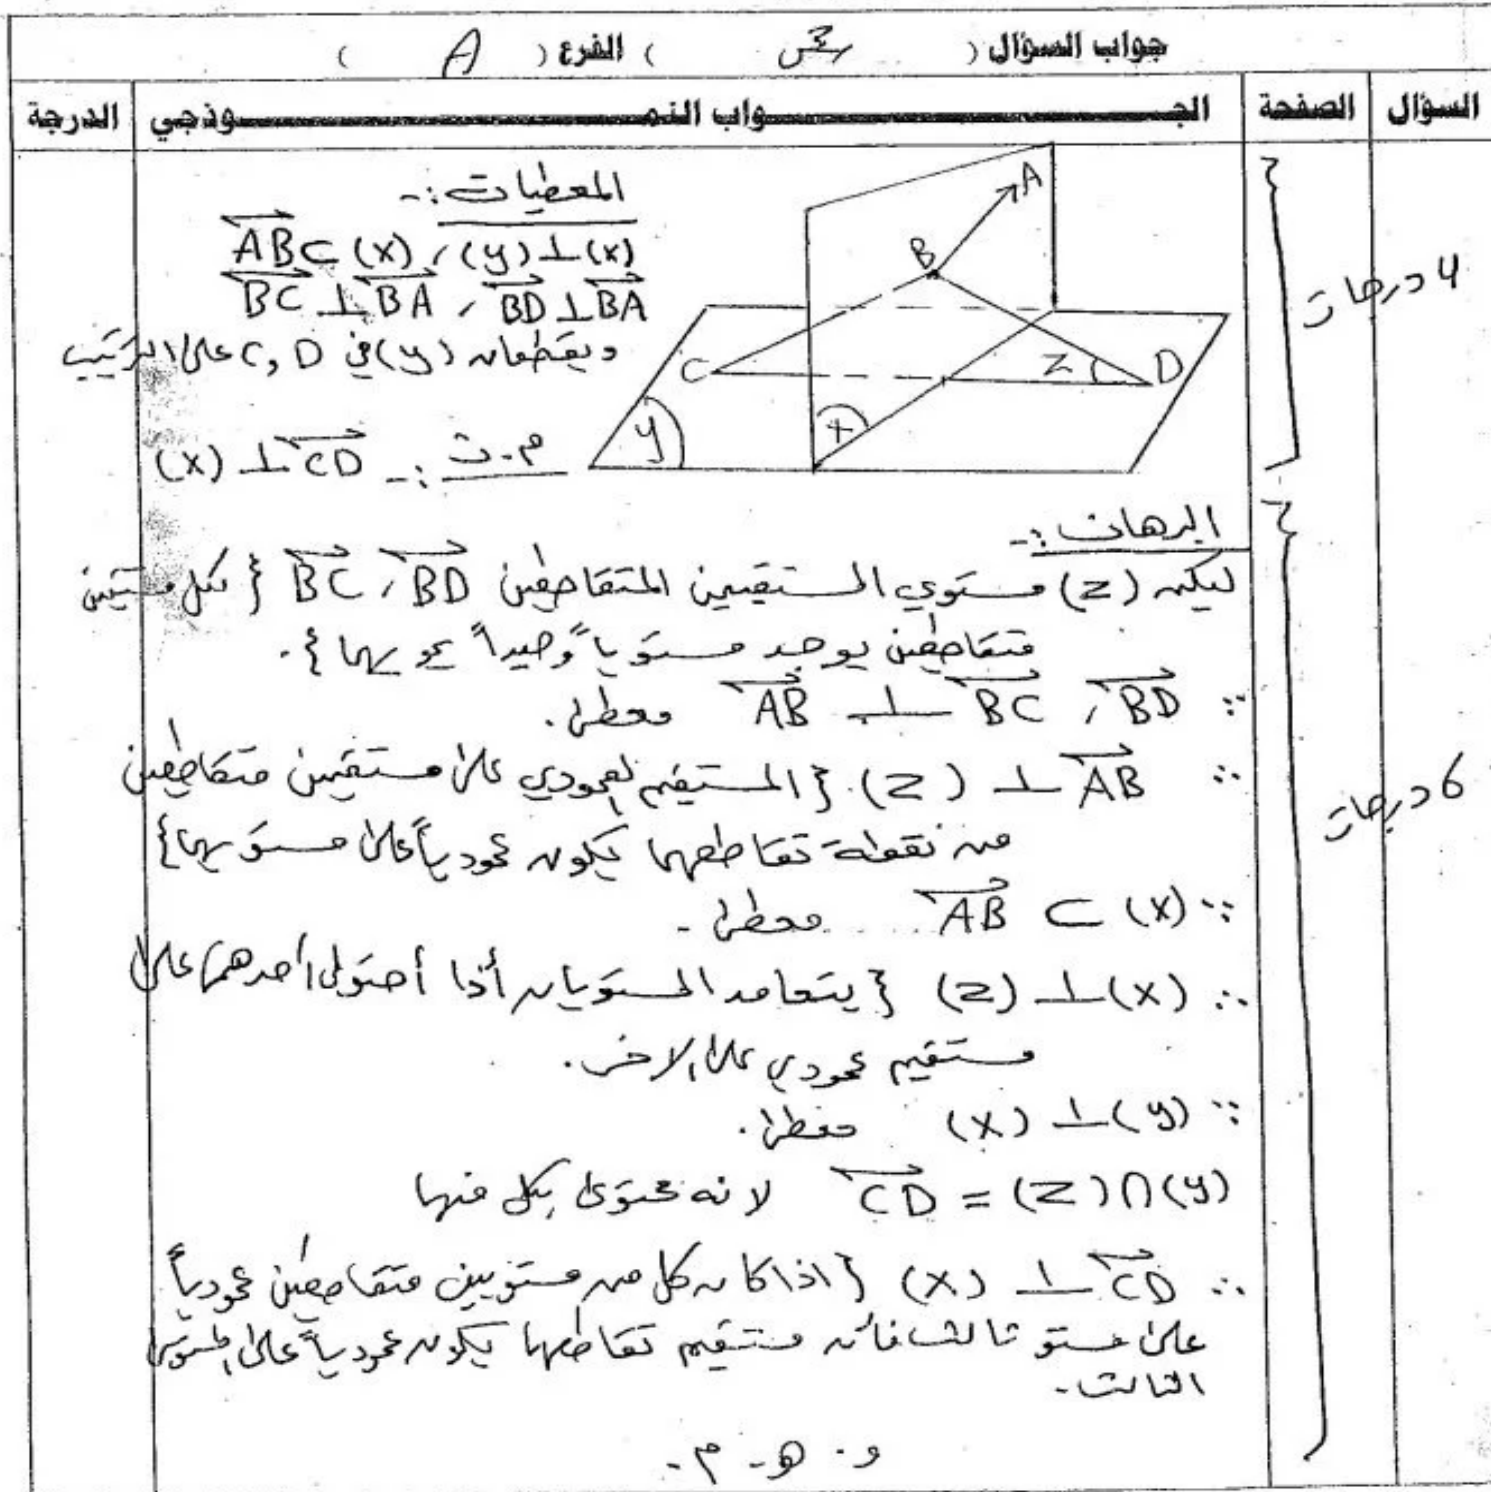 جواب السؤال ( س3 ) الفرع ( A )
السؤال الصفحة الجـــواب النمـــوذجي الدرجة
المعطيات :-
(y) ⊥ (x) ، AB ⊂ (x)
BC ⊥ BA ، BD ⊥ BA
ويقطعان (y) في C , D على الترتيب
م.ث :- CD ⊥ (x)
A
B
C
Z
D
y
x
4 درجات
البرهان :-
ليكن (z) مستوي المستقيمين المتقاطعين BC ، BD { لكل مستقيمين
متقاطعين يوجد مستوياً وحيداً يحويهما }.
∵ AB ⊥ BC ، BD معطى.
∴ AB ⊥ (z) { المستقيم العمودي على مستقيمين متقاطعين
من نقطة تقاطعهما يكون عمودياً على مستويهما }
∵ AB ⊂ (x) معطى.
∴ (z) ⊥ (x) { يتعامد المستويان أذا أحتوى أحدهما على
مستقيم عمودي على الاخر.
∵ (x) ⊥ (y) معطى.
CD = (z) ∩ (y) لانه محتوى بكل منهما
∴ CD ⊥ (x) { اذا كان كل من مستويين متقاطعين عمودياً
على مستو ثالث فأن مستقيم تقاطعهما يكون عمودياً على المستوى
الثالث.
و. هـ. م.
6 درجات